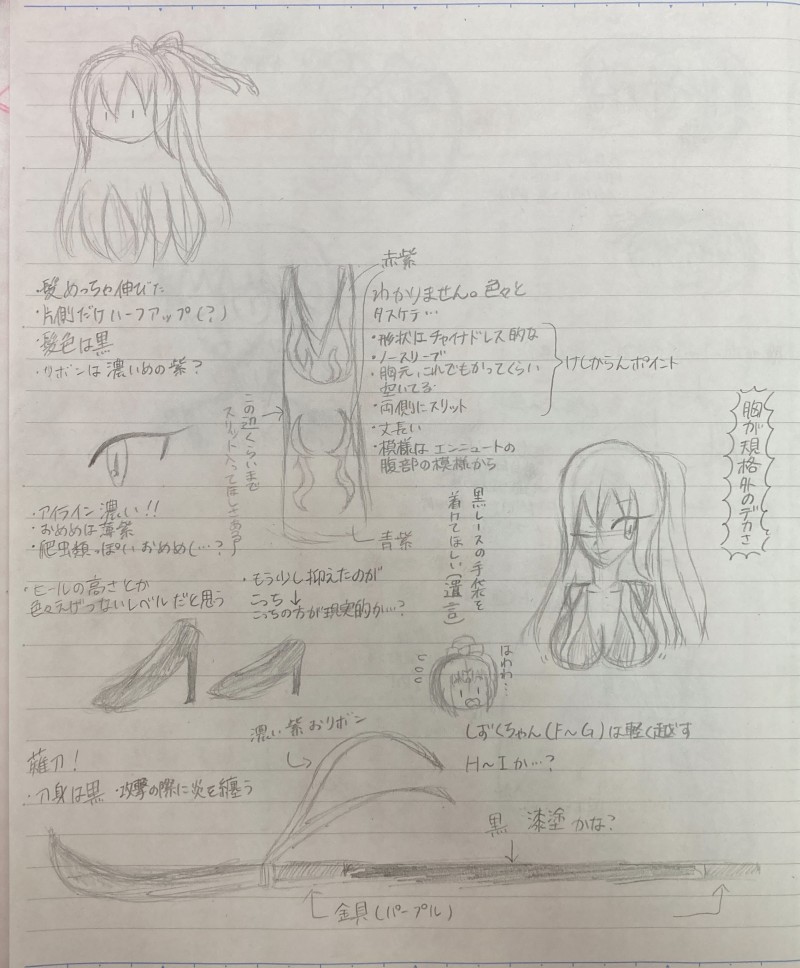 ・髪めっちゃ伸びた
・片側だけハーフアップ(?)
・髪色は黒
・リボンは濃いめの紫?
赤紫
わかりません。色々と
タスケテ…
・形状はチャイナドレス的な
・ノースリーブ
・胸元、これでもかってくらい
空いてる
・両側にスリット
・丈長い
・模様はエンニュートの
腹部の模様から
けしからんポイント
この辺くらいまで
スリット入ってほしさある
青紫
・アイライン濃い!!
・おめめは薄紫
・爬虫類っぽいおめめし…?
胸が規格外のデカさ
黒レースの手袋を
着けてほしい(遺言)
・ヒールの高さとか
色々えげつないレベルだと思う
・もう少し抑えたのが
こっち↓
こっちの方が現実的か…?
はわわ…
しずくちゃん(F~G)は軽く越す
H~Iか…?
濃い紫おリボン
薙刀!
・刀身は黒 ・攻撃の際に炎を纏う
黒 漆塗かな?
金具(パープル)